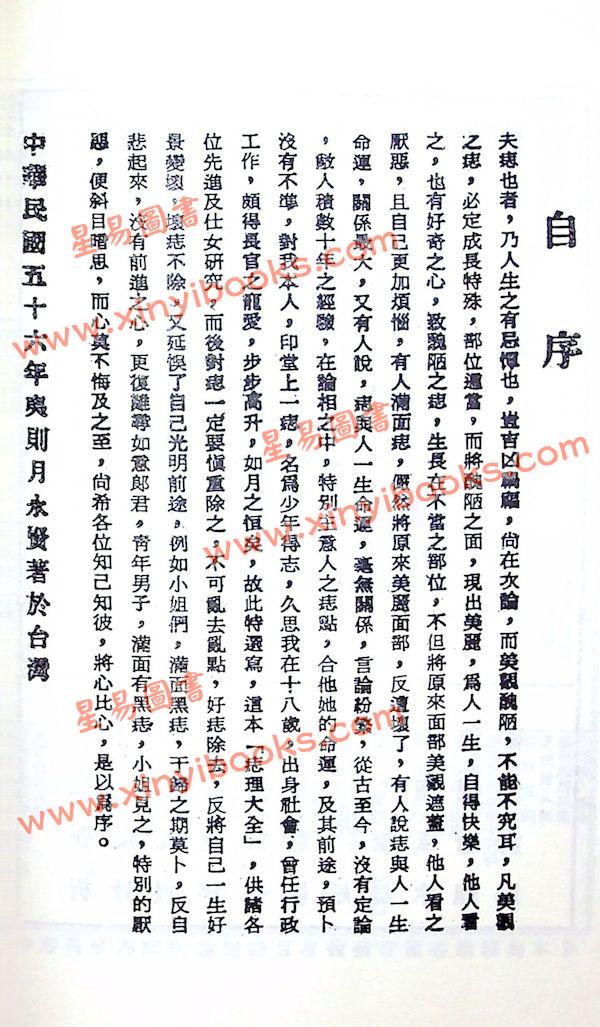 自序
夫痣也者，乃人生之有忌憚也，豈吉凶禍福，尚在次論，而美觀醜陋，不能不究耳，凡美觀
之痣，必定成長特殊，部位適當，而將醜陋之面，現出美麗，為人一生，自得快樂，他人看
之，也有好奇之心，致醜陋之痣，生長在不當之部位，不但將原來面部美觀遮蓋，他人看之
厭惡，且自己更加煩惱，有人滿面痣，儼然將原來美麗面部，反遭壞了，有人說痣與人一生
命運，關係最大，又有人說，痣與人一生命運，毫無關係，言論紛紜，從古至今，沒有定論
，敝人積數十年之經驗，在論相之中，特別注意人之痣點，合他她的命運，及其前途，預卜
沒有不準，對我本人，印堂上一痣，名為少年得志，久思我在十八歲，出身社會，曾任行政
工作，頗得長官之寵愛，步步高升，如月之恒矣，故此特選寫，這本「痣理大全」，供諸各
位先進及仕女研究，而後對痣一定要慎重除之，不可亂去亂點，好痣除去，反將自己一生好
景變壞，壞痣不除，又延悞了自己光明前途，例如小姐們，滿面黑痣，于歸之期莫卜，反自
悲起來，沒有前進之心，更復難尋如意郎君，青年男子，滿面有黑痣，小姐見之，特別的厭
惡，便斜目暗思，而心莫不悔及之至，尚希各位知己知彼，將心比心，是以為序。
中華民國五十六年夷則月永賢著於台灣
星易圖書
www.xinyibooks.com
星易圖書
www.xinyibooks.com
星易圖書
www.xinyibooks.com